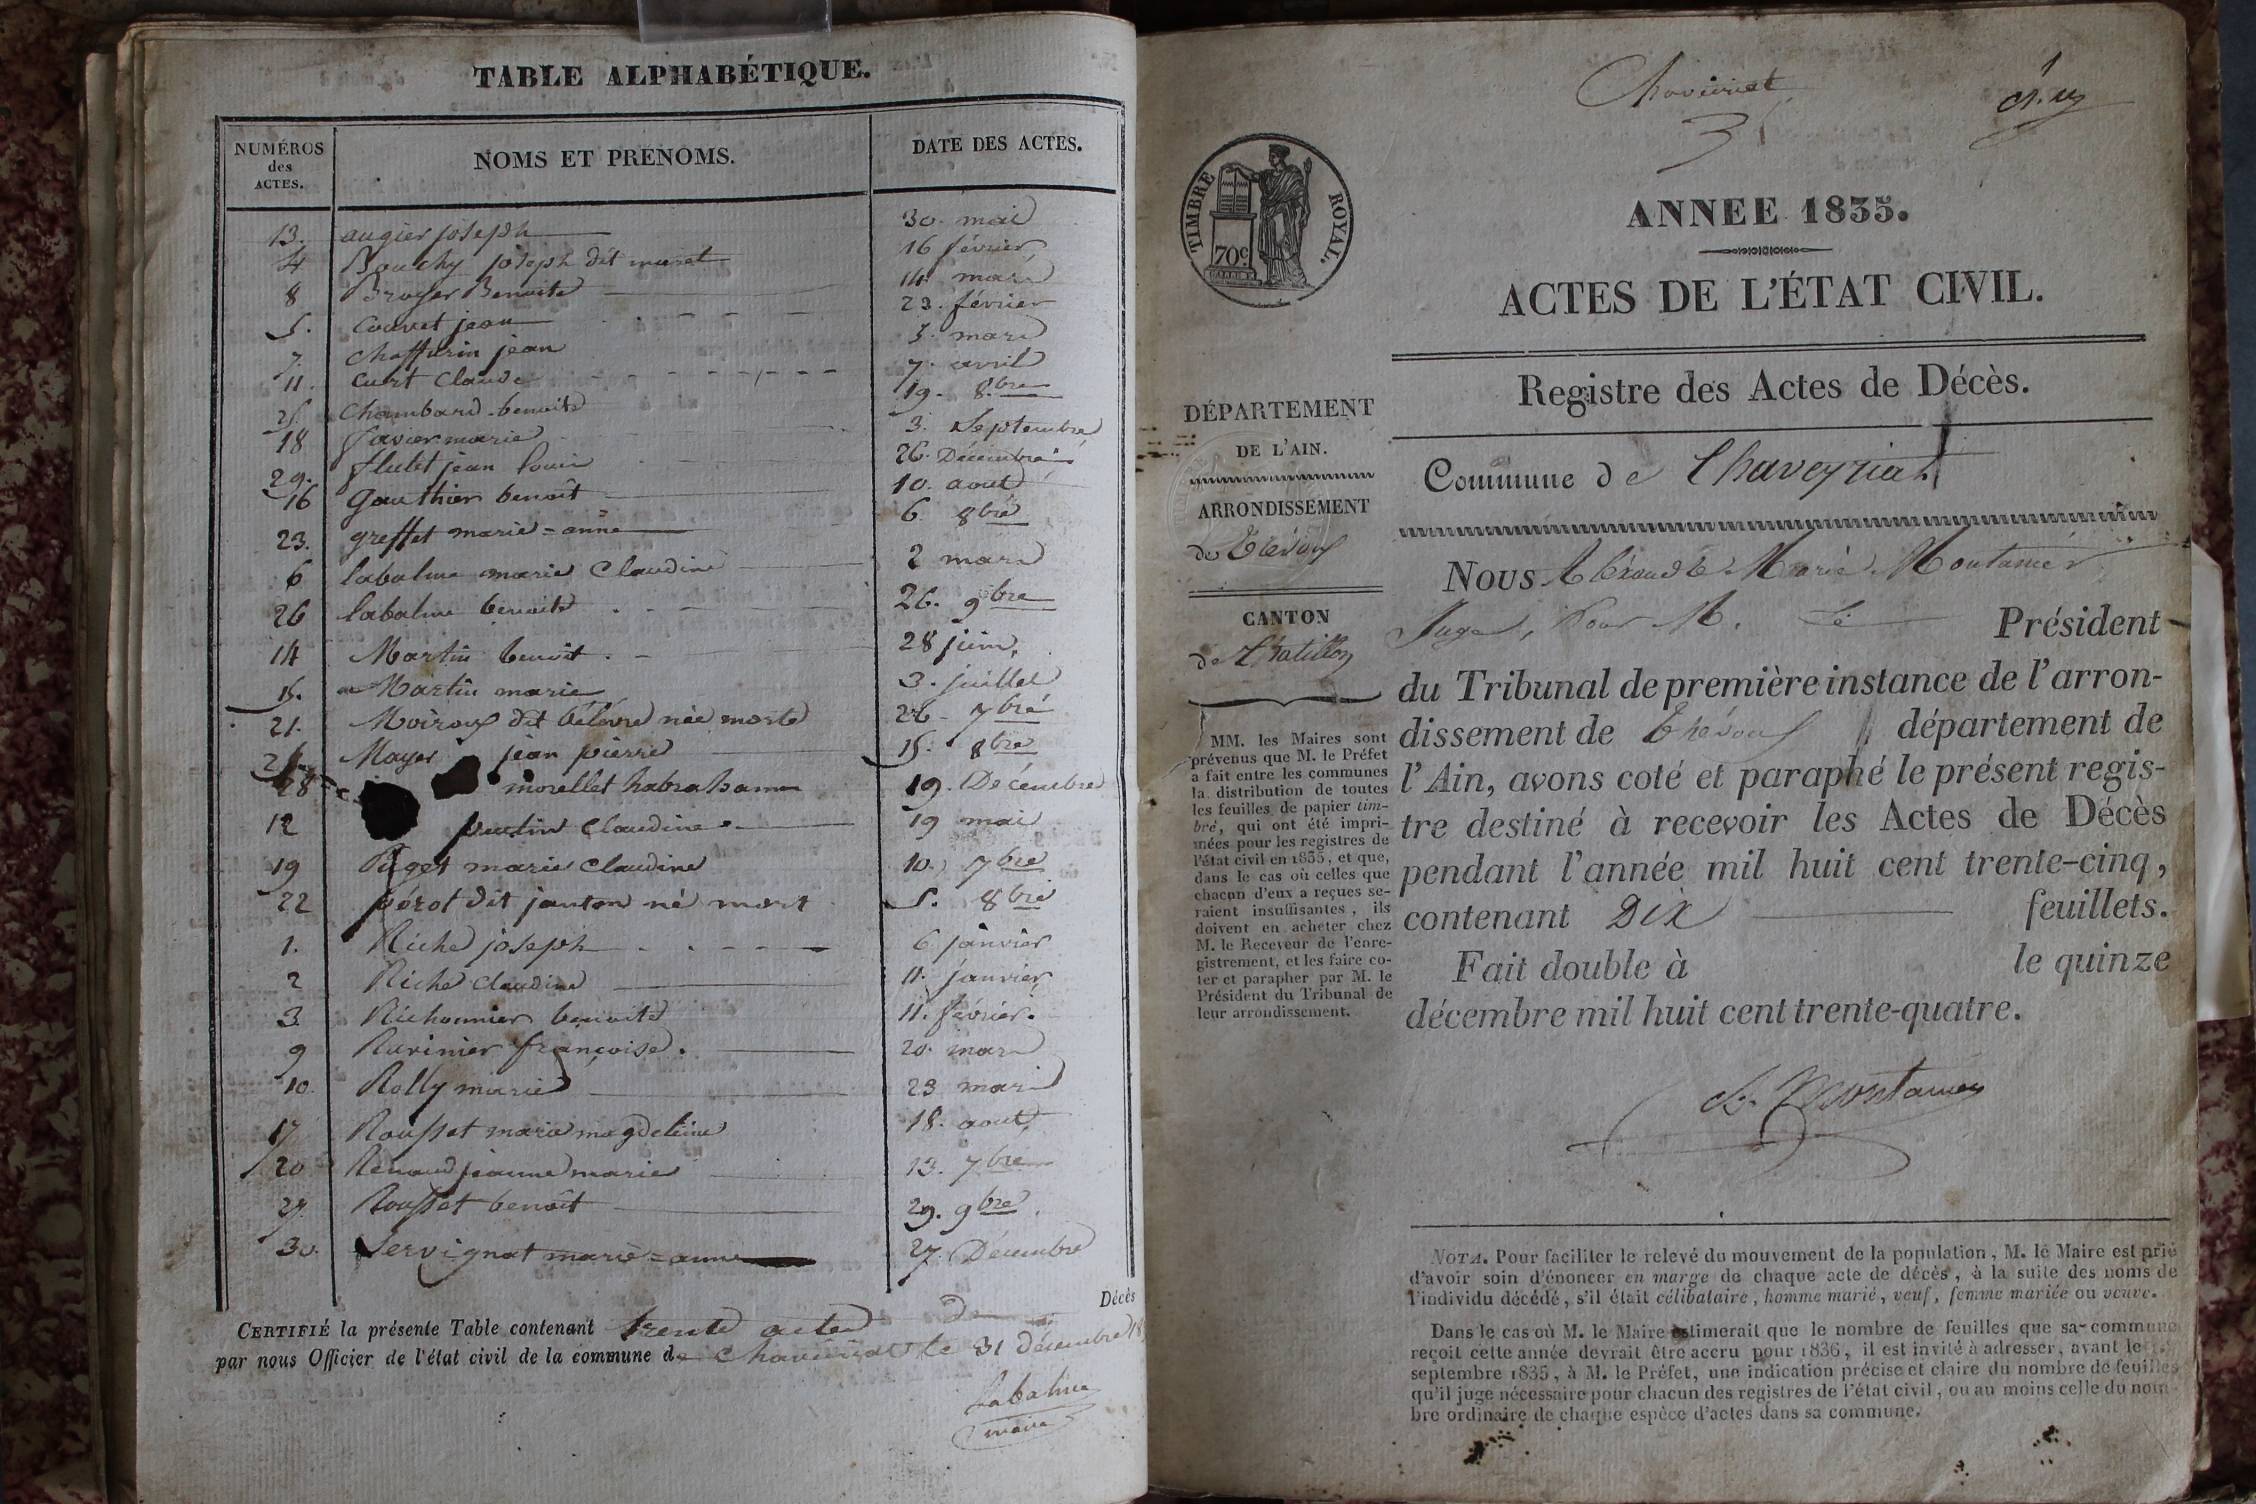 TABLE ALPHABÉTIQUE.
NUMÉROS
des
ACTES.
NOMS ET PRENOMS.
DATE DES ACTES.
13. augier joseph 30. mai
4 Bouchy joseph dit muret 16 février
8 Broyer Benoite 14 mars
5. Couvet jean 23. février
7. Chaffurin jean 3. mars
11. Curt Claude 7. avril
25. Chambard benoite 19. 8bre
18 favier marie 3. Septembre
29. flutet jean louis 26. Décembre
16 Gauthier benoît 10. aout
23. greffet marie=anne 6 8bre
6 labalme marie Claudine 2 mars
26 labalme benoite 26. 9bre
14 Martin benoit 28 juin,
15. Martin marie 3. juillet
21. Moiroux dit bélèvre née morte 26 7bre
24. Mayer jean pierre 15. 8bre
28 morellet habraham 19. Décembre
12 putin Claudine 19 mai
19 Puget marie Claudine 10. 7bre
22 pérot dit janton né mort 5. 8bre
1. Riche joseph 6 janvier
2 Riche Claudine 11. janvier
3. Richonnier benoite 11. février.
9 Ravinier françoise. 20. mars
10. Rolly marie 23 mars
17 Rousset marie magdeleine 18. aout
20 Renaud jeanne marie 13. 7bre
27. Rousset benoît 29. 9bre
30. Servignat marie=anne 27. Décembre
CERTIFIÉ la présente Table contenant trente actes de Décès
par nous Officier de l'état civil de la commune de Chaveyriat le 31 décembre 18
Labalme
maire
Chaveyriat
35
TIMBRE ROYAL.
70c.
ANNEE 1835.
ACTES DE L'ÉTAT CIVIL.
Registre des Actes de Décès.
DÉPARTEMENT
DE L'AIN.
ARRONDISSEMENT
de Trévoux
CANTON
de Chatillon
MM. les Maires sont
prévenus que M. le Préfet
a fait entre les communes
la distribution de toutes
les feuilles de papier tim-
bré, qui ont été impri-
mées pour les registres de
l'état civil en 1835, et que,
dans le cas où celles que
chacun d'eux a reçues se-
raient insuffisantes, ils
doivent en acheter chez
M. le Receveur de l'enre-
gistrement, et les faire co-
ter et parapher par M. le
Président du Tribunal de
leur arrondissement.
Commune de Chaveyriat
Nous Alexandre Marie Montanier
Juge, Pour M. Le Président
du Tribunal de première instance de l'arron-
dissement de Trévoux département de
l'Ain, avons coté et paraphé le présent regis-
tre destiné à recevoir les Actes de Décès
pendant l'année mil huit cent trente-cinq,
contenant Dix feuillets.
Fait double à le quinze
décembre mil huit cent trente-quatre.
Montanier
NOTA. Pour faciliter le relevé du mouvement de la population, M. le Maire est prié
d'avoir soin d'énoncer en marge de chaque acte de décès, à la suite des noms de
l'individu décédé, s'il était célibataire, homme marié, veuf, femme mariée ou veuve.
Dans le cas où M. le Maire estimerait que le nombre de feuilles que sa commune
reçoit cette année devrait être accru pour 1836, il est invité à adresser, avant le
septembre 1835, à M. le Préfet, une indication précise et claire du nombre de feuilles
qu'il juge nécessaire pour chacun des registres de l'état civil, ou au moins celle du nom-
bre ordinaire de chaque espèce d'actes dans sa commune.